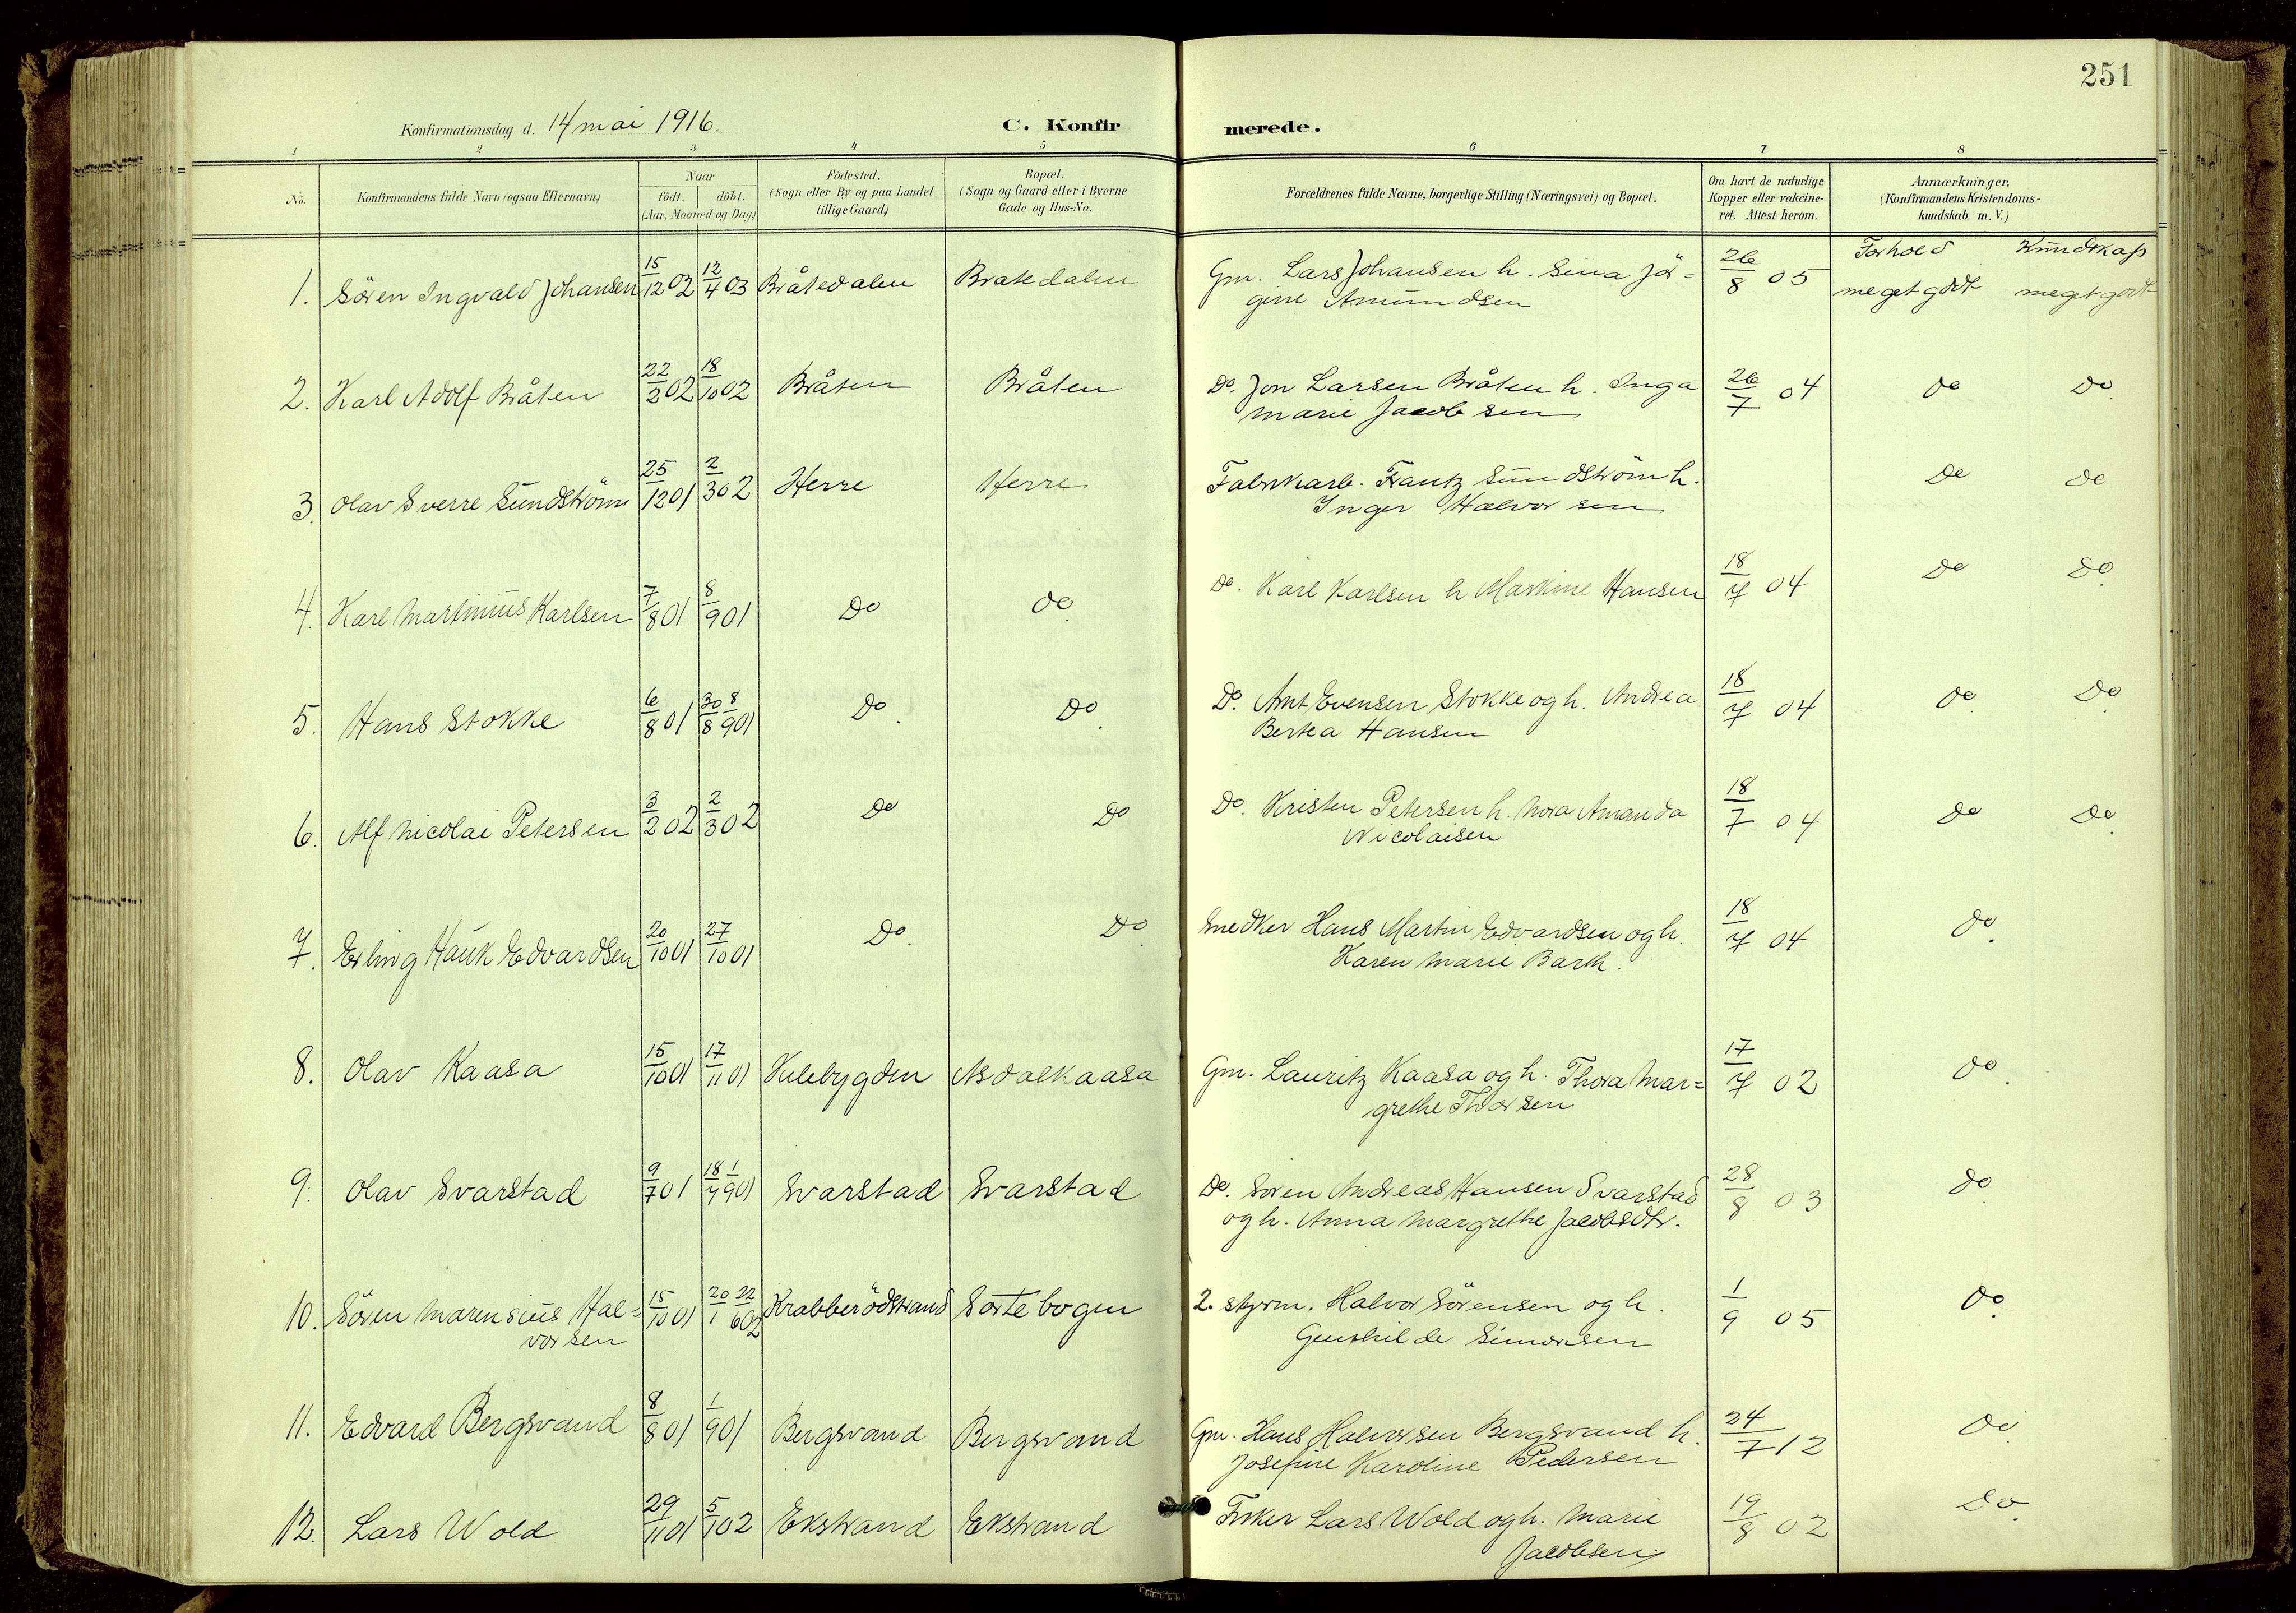 251
Konfirmationsdag d. 14 mai 1916.
C. Konfir
merede.
1 2 3 4 5 6 7 8
No.
Konfirmandens fulde Navn (ogsaa Efternavn)
Naar
födt. döbt.
(Aar, Maaned og Dag)
Födested.
(Sogn eller By og paa Landet
tillige Gaard)
Bopæl.
(Sogn og Gaard eller i Byerne
Gade og Hus-No.
Forældrenes fulde Navne, borgerlige Stilling (Næringsvei) og Bopæl.
Om havt de naturlige
Kopper eller vakcine-
ret. Attest herom.
Anmærkninger,
(Konfirmandens Kristendoms-
kundskab m. V.)
Forhold Kundskap
1. Sören Ingvald Johansen 15/12 02 12/4 03 Bråtedalen Bratedalen Gm. Lars Johansen h. Sina Jör= 26/8 05 meget godt meget godt
gine Amundsen
2. Karl Adolf Bråten 22/2 02 18/10 02 Bråten Bråten Do. Jon Larsen Bråten h. Inga 26/7 04 do Do.
marie Jacobsen
3. Olav Sverre Sundström 25/12 01 2/3 02 Herre Herre Fabrikarb. Frantz Sundström h. De de
Inger Halvorsen
4. Karl Martinius Karlsen 7/8 01 8/9 01 Do do. Do. Karl Karlsen h Martine Hansen 18/7 04 Do Do.
5. Hans Stokke 6/8 01 30/8 8/9 01 Do. Do. Do. Ant Evensen Stokke og h. Andrea 18/7 04 do. Do.
Bertea Hansen
6. Alf Nicolai Petersen 3/2 02 2/3 02 Do Do Do. Kristen Petersen h. Nora Amanda 18/7 04 Do Do.
Nicolaisen
7. Erling Hauk Edvardsen 20/10 01 27/10 01 Do. Do. Snedker Hans Martin Edvardsen og h. 18/7 04 Do.
Karen Marie Barth.
8. Olav Kaasa 15/10 01 17/11 01 Hulebygden Asdalkaasa Gm. Lauritz Kaasa og h. Thora Mar= 17/7 02 Do.
grethe Thorsen
9. Olav Svarstad 9/7 01 18/7 1/9 01 Svarstad Svarstad Do. Soren Andreas Hansen Svarstad 28/8 03 Do.
og h. Anna Margrethe Jacobsdtr.
10. Sören Marensius Hal= 15/10 01 20/1 22/6 02 Krabberödstrand Sortebogen 2. styrm. Halvor Sörensen og h. 1/9 05 Do.
vorsen Gunhilde Simonsen
11. Edvard Bergsvand 8/8 01 1/9 01 Bergsvand Bergsvand Gm. Hans Halvorsen Bergsvand h. 24/7 12 Do.
Josefine Karoline Pedersen
12. Lars Wold 29/11 01 5/10 2 Ekstrand Ekstrand Fisker Lars Wold og h. Marie 19/8 02 Do.
Jacobsen